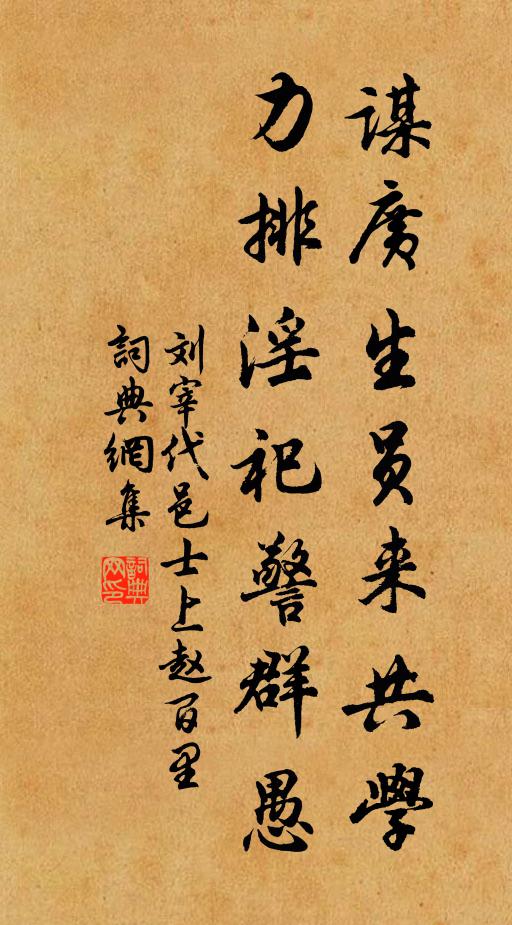 謀廣生员来共學
力排淫祀警群愚
刘宰代邑士上赵百里
詞典網集
詞典網印